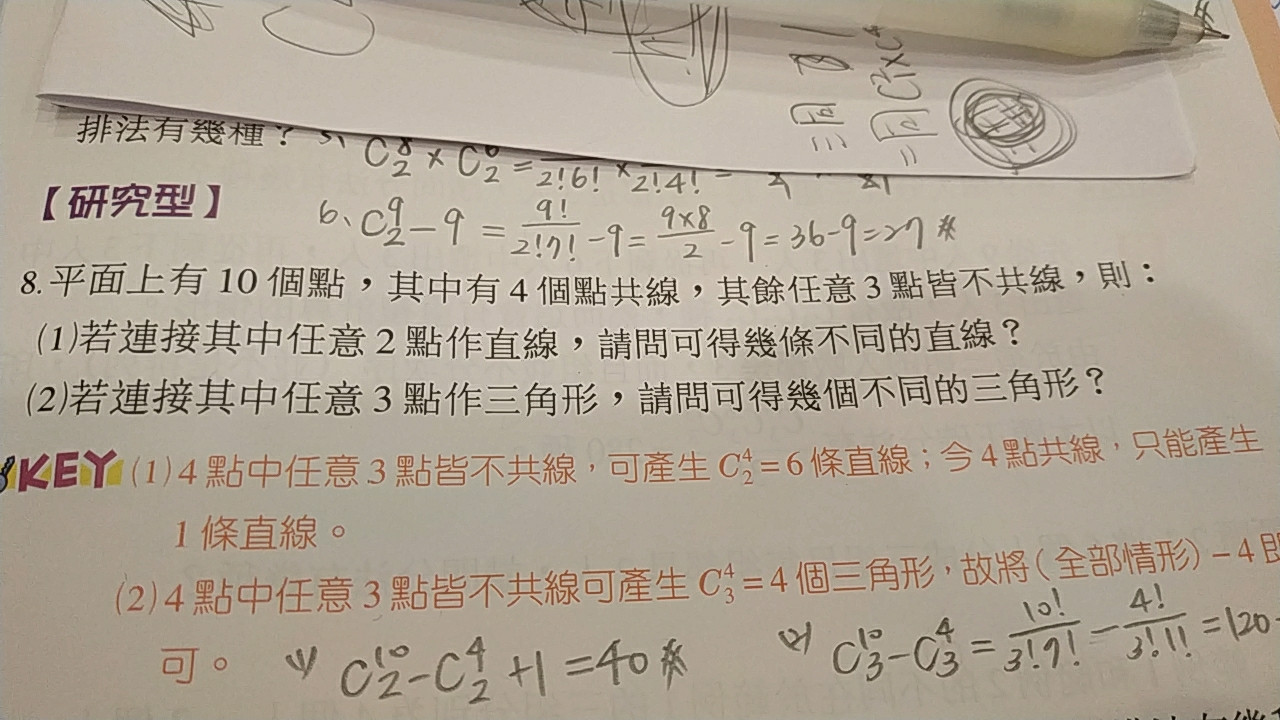 三 同
= 同 C
排法有幾種？ 5、 C⁸₂ × C⁶₂ = 2!6! × 2!4! =
【研究型】
6、 C⁹₂ - 9 = 9!/2!7! - 9 = 9×8/2 - 9 = 36 - 9 = 27 #
8. 平面上有 10 個點，其中有 4 個點共線，其餘任意 3 點皆不共線，則：
(1)若連接其中任意 2 點作直線，請問可得幾條不同的直線？
(2)若連接其中任意 3 點作三角形，請問可得幾個不同的三角形？
KEY (1) 4 點中任意 3 點皆不共線，可產生 C⁴₂ = 6 條直線；今 4 點共線，只能產生
1 條直線。
(2) 4 點中任意 3 點皆不共線可產生 C⁴₃ = 4 個三角形，故將(全部情形) − 4 即
可。 (1) C¹⁰₂ - C⁴₂ + 1 = 40 # (2) C¹⁰₃ - C⁴₃ = 10!/3!7! - 4!/3!1! = 120 -